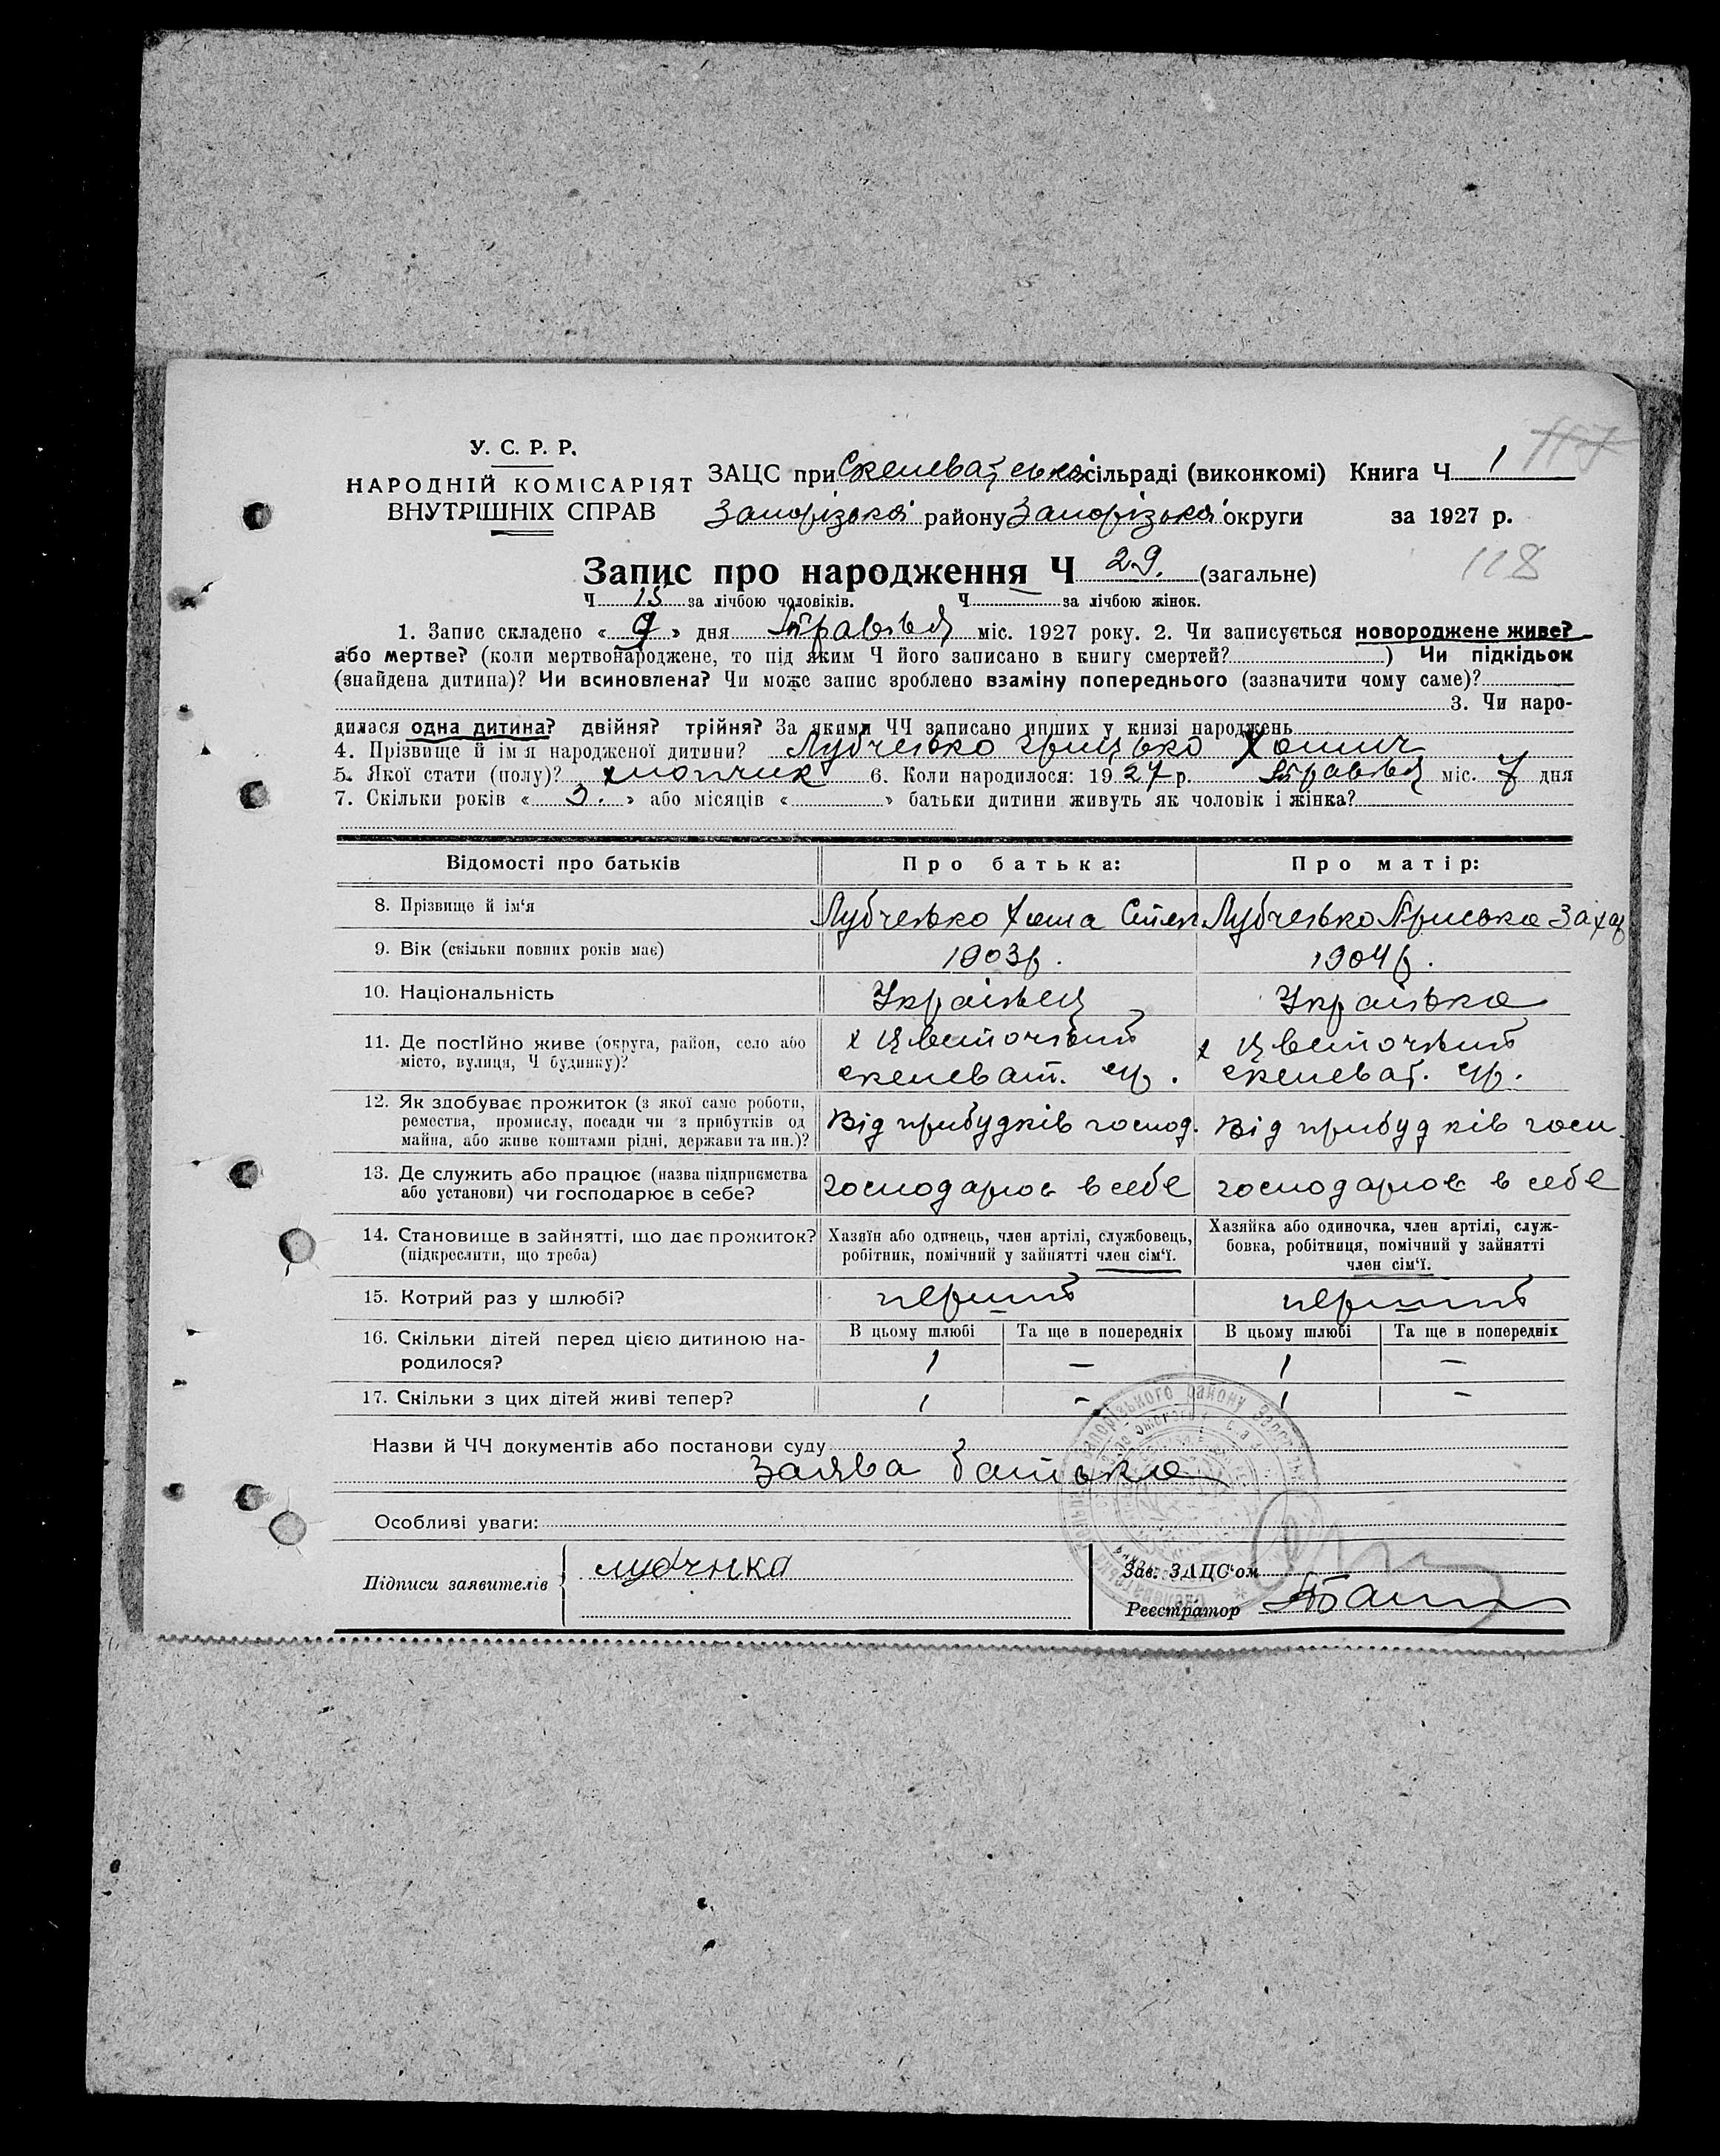 У. С. Р. Р.
НАРОДНІЙ КОМІСАРІЯТ
ВНУТРІШНІХ СПРАВ
ЗАЦС при Скелеватській сільраді (виконкомі) Книга Ч 1
Запорізької району Запорізької округи за 1927 р.
Запис про народження Ч 29. (загальне)
118
Ч 15 за лічбою чоловіків. Ч за лічбою жінок.
1. Запис складено « 9 » дня Травня міс. 1927 року. 2. Чи записується новороджене живе?
або мертве? (коли мертвонароджене, то під яким Ч його записано в книгу смертей? ) Чи підкідьок
(знайдена дитина)? Чи всиновлена? Чи може запис зроблено взаміну попереднього (зазначити чому саме)?
3. Чи наро-
дилася одна дитина? двійня? трійня? За якими ЧЧ записано инших у книзі народжень
4. Прізвище й ім'я народженої дитини? Лубченько Грицько Хомич
5. Якої стати (полу)? хлопчик 6. Коли народилося: 1927 р. Травня міс. 7 дня
7. Скільки років « 3. » або місяців « » батьки дитини живуть як чоловік і жінка?
Відомості про батьків Про батька: Про матір:
8. Прізвище й ім'я Лубченько Хома Степ Лубченько Приська Захар
9. Вік (скільки повних років має) 1903р. 1904р.
10. Національність Українець Українька
11. Де постійно живе (округа, район, село або х Цветочний х Цветочний
місто, вулиця, Ч будинку)? скелеват. с/р. скелеват. с/р.
12. Як здобуває прожиток (з якої саме роботи,
ремества, промислу, посади чи з прибутків од Від прибудків господ. Від прибудків госп.
майна, або живе коштами рідні, держави та ин.)?
13. Де служить або працює (назва підприємства
або установи) чи господарює в себе? господарює в себе господарює в себе
14. Становище в зайнятті, що дає прожиток? Хазяїн або одинець, член артілі, службовець, Хазяйка або одиночка, член артілі, служ-
(підкреслити, що треба) робітник, помічний у зайнятті член сім'ї. бовка, робітниця, помічний у зайнятті
член сім'ї.
15. Котрий раз у шлюбі? перший перший
16. Скільки дітей перед цією дитиною на- В цьому шлюбі Та ще в попередніх В цьому шлюбі Та ще в попередніх
родилося? 1 — 1 —
17. Скільки з цих дітей живі тепер? 1 - 1 -
Назви й ЧЧ документів або постанови суду
Заява батька
Особливі уваги:
Підписи заявителів лубчнка
Зав. ЗАЦС'ом
Реєстратор